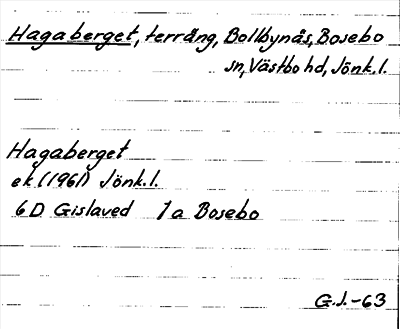 Hagaberget, terräng, Bollbynäs, Bosebo
sn, Västbo hd, Jönk. l.
Hagaberget
ek (1961) Jönk. l.
6 D Gislaved 1 a Bosebo
G.J.-63